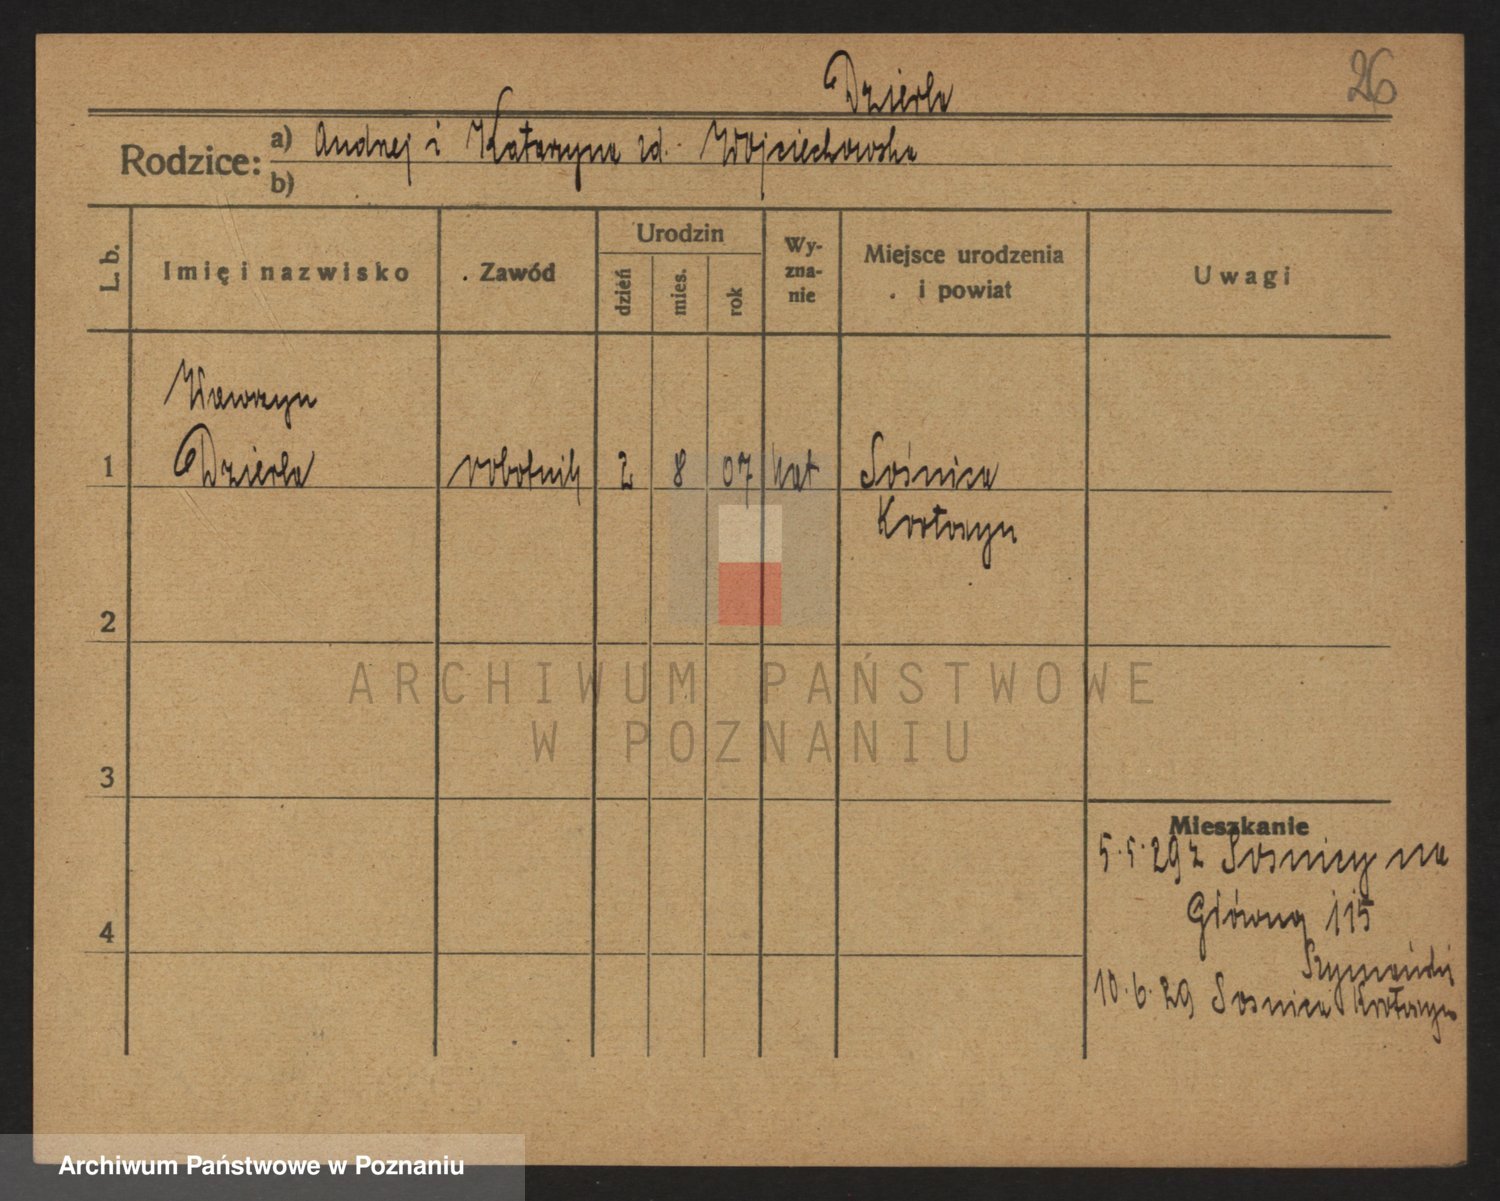 26
Dzierla
Rodzice: a) Andrzej i Katarzyna zd. Wojciechowska
b)
L. b. Imię i nazwisko Zawód Urodzin dzień mies. rok Wy-zna-nie Miejsce urodzenia i powiat Uwagi
Wawrzyn
1 Dzierla robotnik 2 8 07 kat Sośnica
Krotoszyn
2
ARCHIWUM PAŃSTWOWE
W POZNANIU
3
Mieszkanie
5.5.29 z Sosnicy na
4 Główna 115
Szymański
10.6.29 Sosnica Krotoszyn
Archiwum Państwowe w Poznaniu